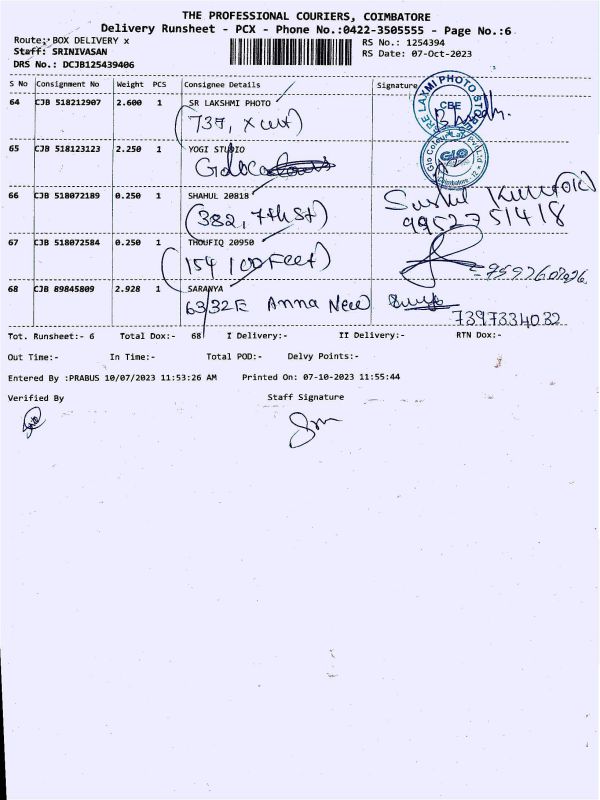 THE PROFESSIONAL COURIERS, COIMBATORE
Delivery Runsheet - PCX - Phone No.:0422-3505555 - Page No.:6
Route:-BOX DELIVERY x
RS No.: 1254394
Staff: SRINIVASAN
RS Date: 07-Oct-2023
DRS No.: DCJB125439406
S No Consignment No Weight PCS Consignee Details Signature
64 CJB 518212907 2.600 1 SR LAKSHMI PHOTO
(737, X cut)
SRE LAXMI PHOTO STORES
CBE
65 CJB 518123123 2.250 1 YOGI STUDIO
Glo Colour Lab Pvt Ltd
GLO
Coimbatore - 12
66 CJB 518072189 0.250 1 SHAHUL 20818
(382, 7th St)
Sushil Kumar
9952751418
67 CJB 518072584 0.250 1 THOUFIQ 20950
(154 100 Feet)
68 CJB 89845809 2.928 1 SARANYA
63/32E Anna New
7397334032
Tot. Runsheet:- 6 Total Dox:- 68 I Delivery:- II Delivery:- RTN Dox:-
Out Time:- In Time:- Total POD:- Delvy Points:-
Entered By :PRABUS 10/07/2023 11:53:26 AM Printed On: 07-10-2023 11:55:44
Verified By Staff Signature